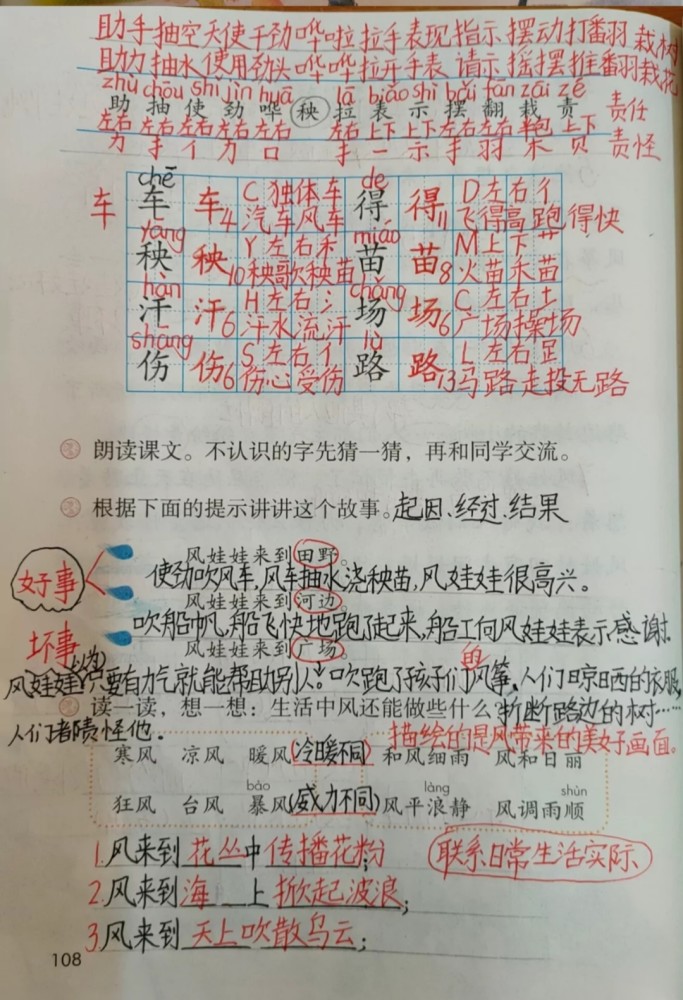 助手抽空天使干劲哗啦拉手表现指示摆动打番羽栽树
助力抽水使用劲头哗哗拉开手表请示摇摆推番羽栽花
zhù chōu shǐ jìn huā lā biǎo shì bǎi fān zāi zé
助 抽 使 劲 哗 秧 拉 表 示 摆 翻 栽 责 责任
左右 左右 左右 左右 左右 左右 上下 上下 左右 左右 半包 上下
力 扌 亻 力 口 扌 一 示 扌 羽 木 贝 责怪
chē de
车 车 车 4 C 独体 车 得 得 11 D 左右 彳
汽车风车 飞得高跑得快
yāng miáo
秧 秧 10 Y 左右 禾 苗 苗 8 M 上下 艹
秧歌秧苗 火苗禾苗
hàn chǎng
汗 汗 6 H 左右 氵 场 场 6 C 左右 土
汗水流汗 广场操场
shāng lù
伤 伤 6 S 左右 亻 路 路 13 L 左右 𧾷
伤心受伤 马路走投无路
朗读课文。不认识的字先猜一猜，再和同学交流。
根据下面的提示讲讲这个故事。起因、经过、结果
好事
风娃娃来到田野。
使劲吹风车,风车抽水浇秧苗,风娃娃很高兴。
风娃娃来到河边。
吹船帆,船飞快地跑了起来,船工向风娃娃表示感谢.
坏事
风娃娃来到广场。
风娃娃以为只要有力气就能帮助别人。吹跑了孩子们的风筝、人们晾晒的衣服,
读一读，想一想：生活中风还能做些什么？折断路边的树……
人们都责怪他.
描绘的是风带来的美好画面。
寒风 凉风 暖风(冷暖不同) 和风细雨 风和日丽
bào làng shùn
狂风 台风 暴风(威力不同) 风平浪静 风调雨顺
1.风来到花丛中传播花粉
联系日常生活实际
2.风来到海上掀起波浪;
3.风来到天上吹散乌云;
108